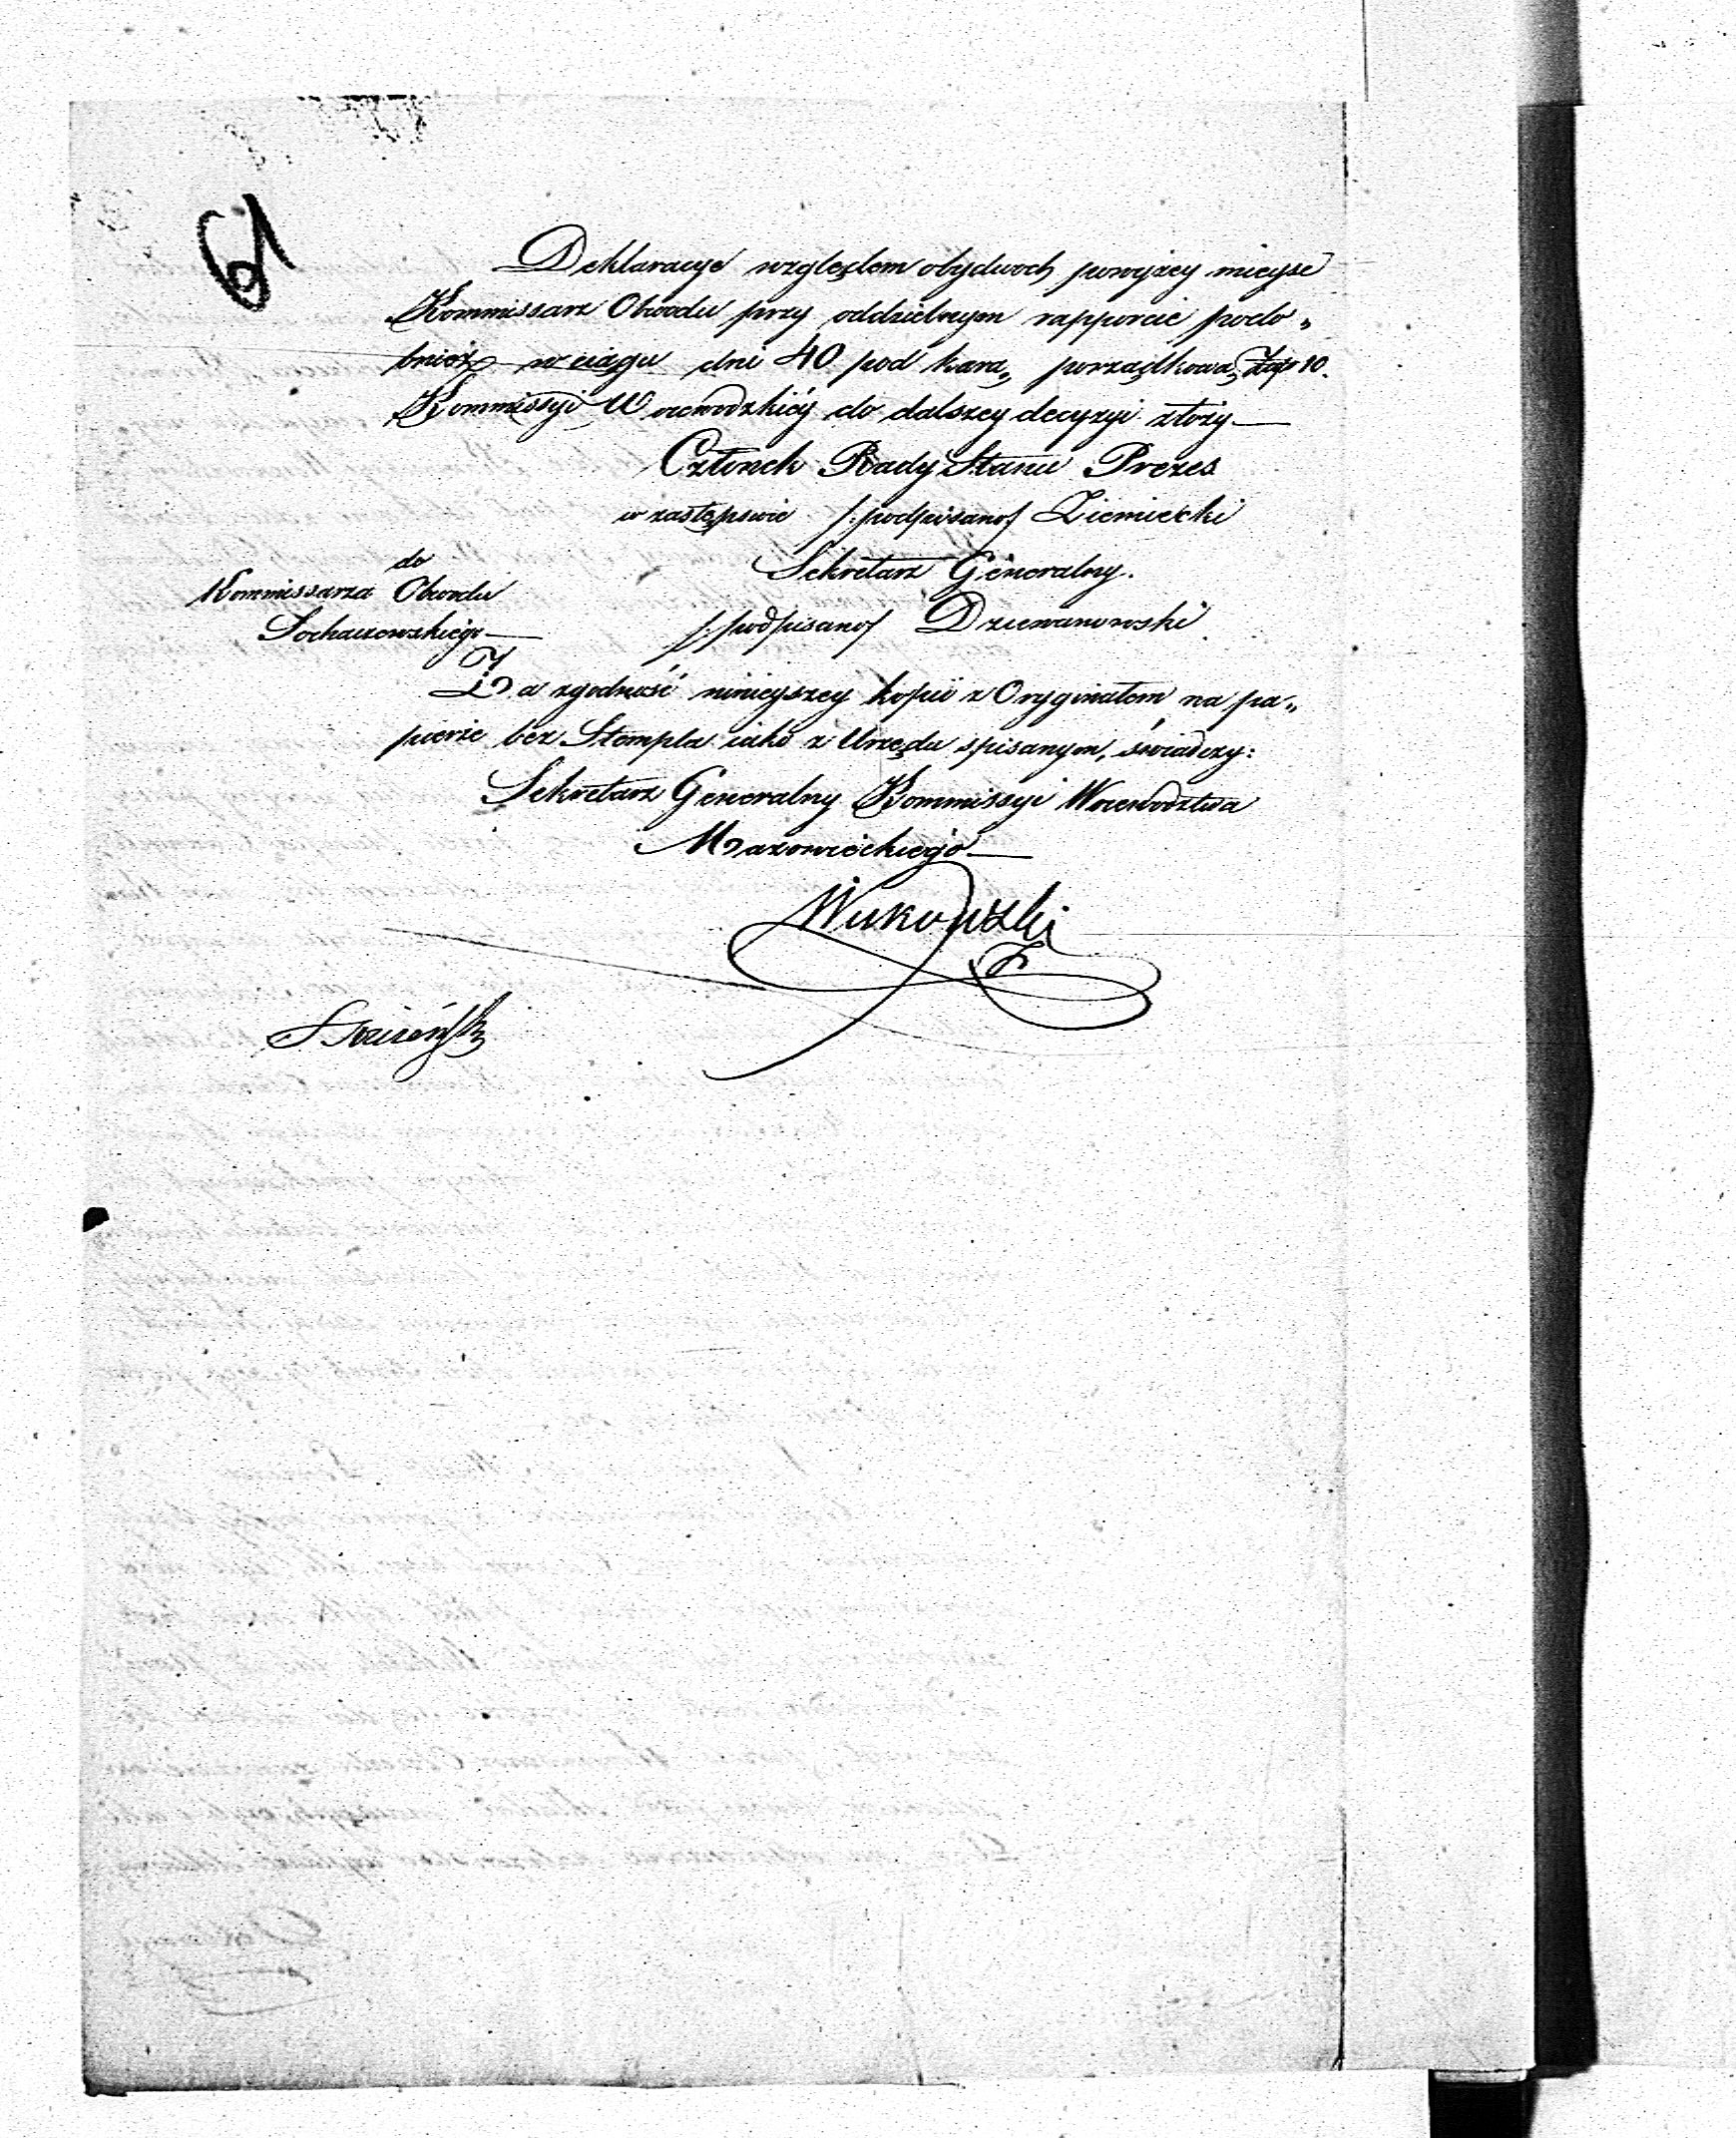 61
Deklaracye względem obydwoch powyżey mieysc
Kommissarz Obwodu przy oddzielnym rapporcie podo„
bnież w ciągu dni 40 pod karą porządkową Złp 10.
Kommissyi Woiewodzkiéy do dalszey decyzyi złoży—
Członek Rady Stanu Prezes
w zastępswie /:podpisano/ Ziemiecki
Sekretarz Generalny.
/:podpisano/ Dziewanowski
do
Kommissarza Obwodu
Sochaczewskiego—
Za zgodność ninieyszey kopii z Oryginałem na pa„
pierze bez Stempla iako z Urzędu spisanym, świadczy:
Sekretarz Generalny Kommissyi Woiewodztwa
Mazowieckiego—